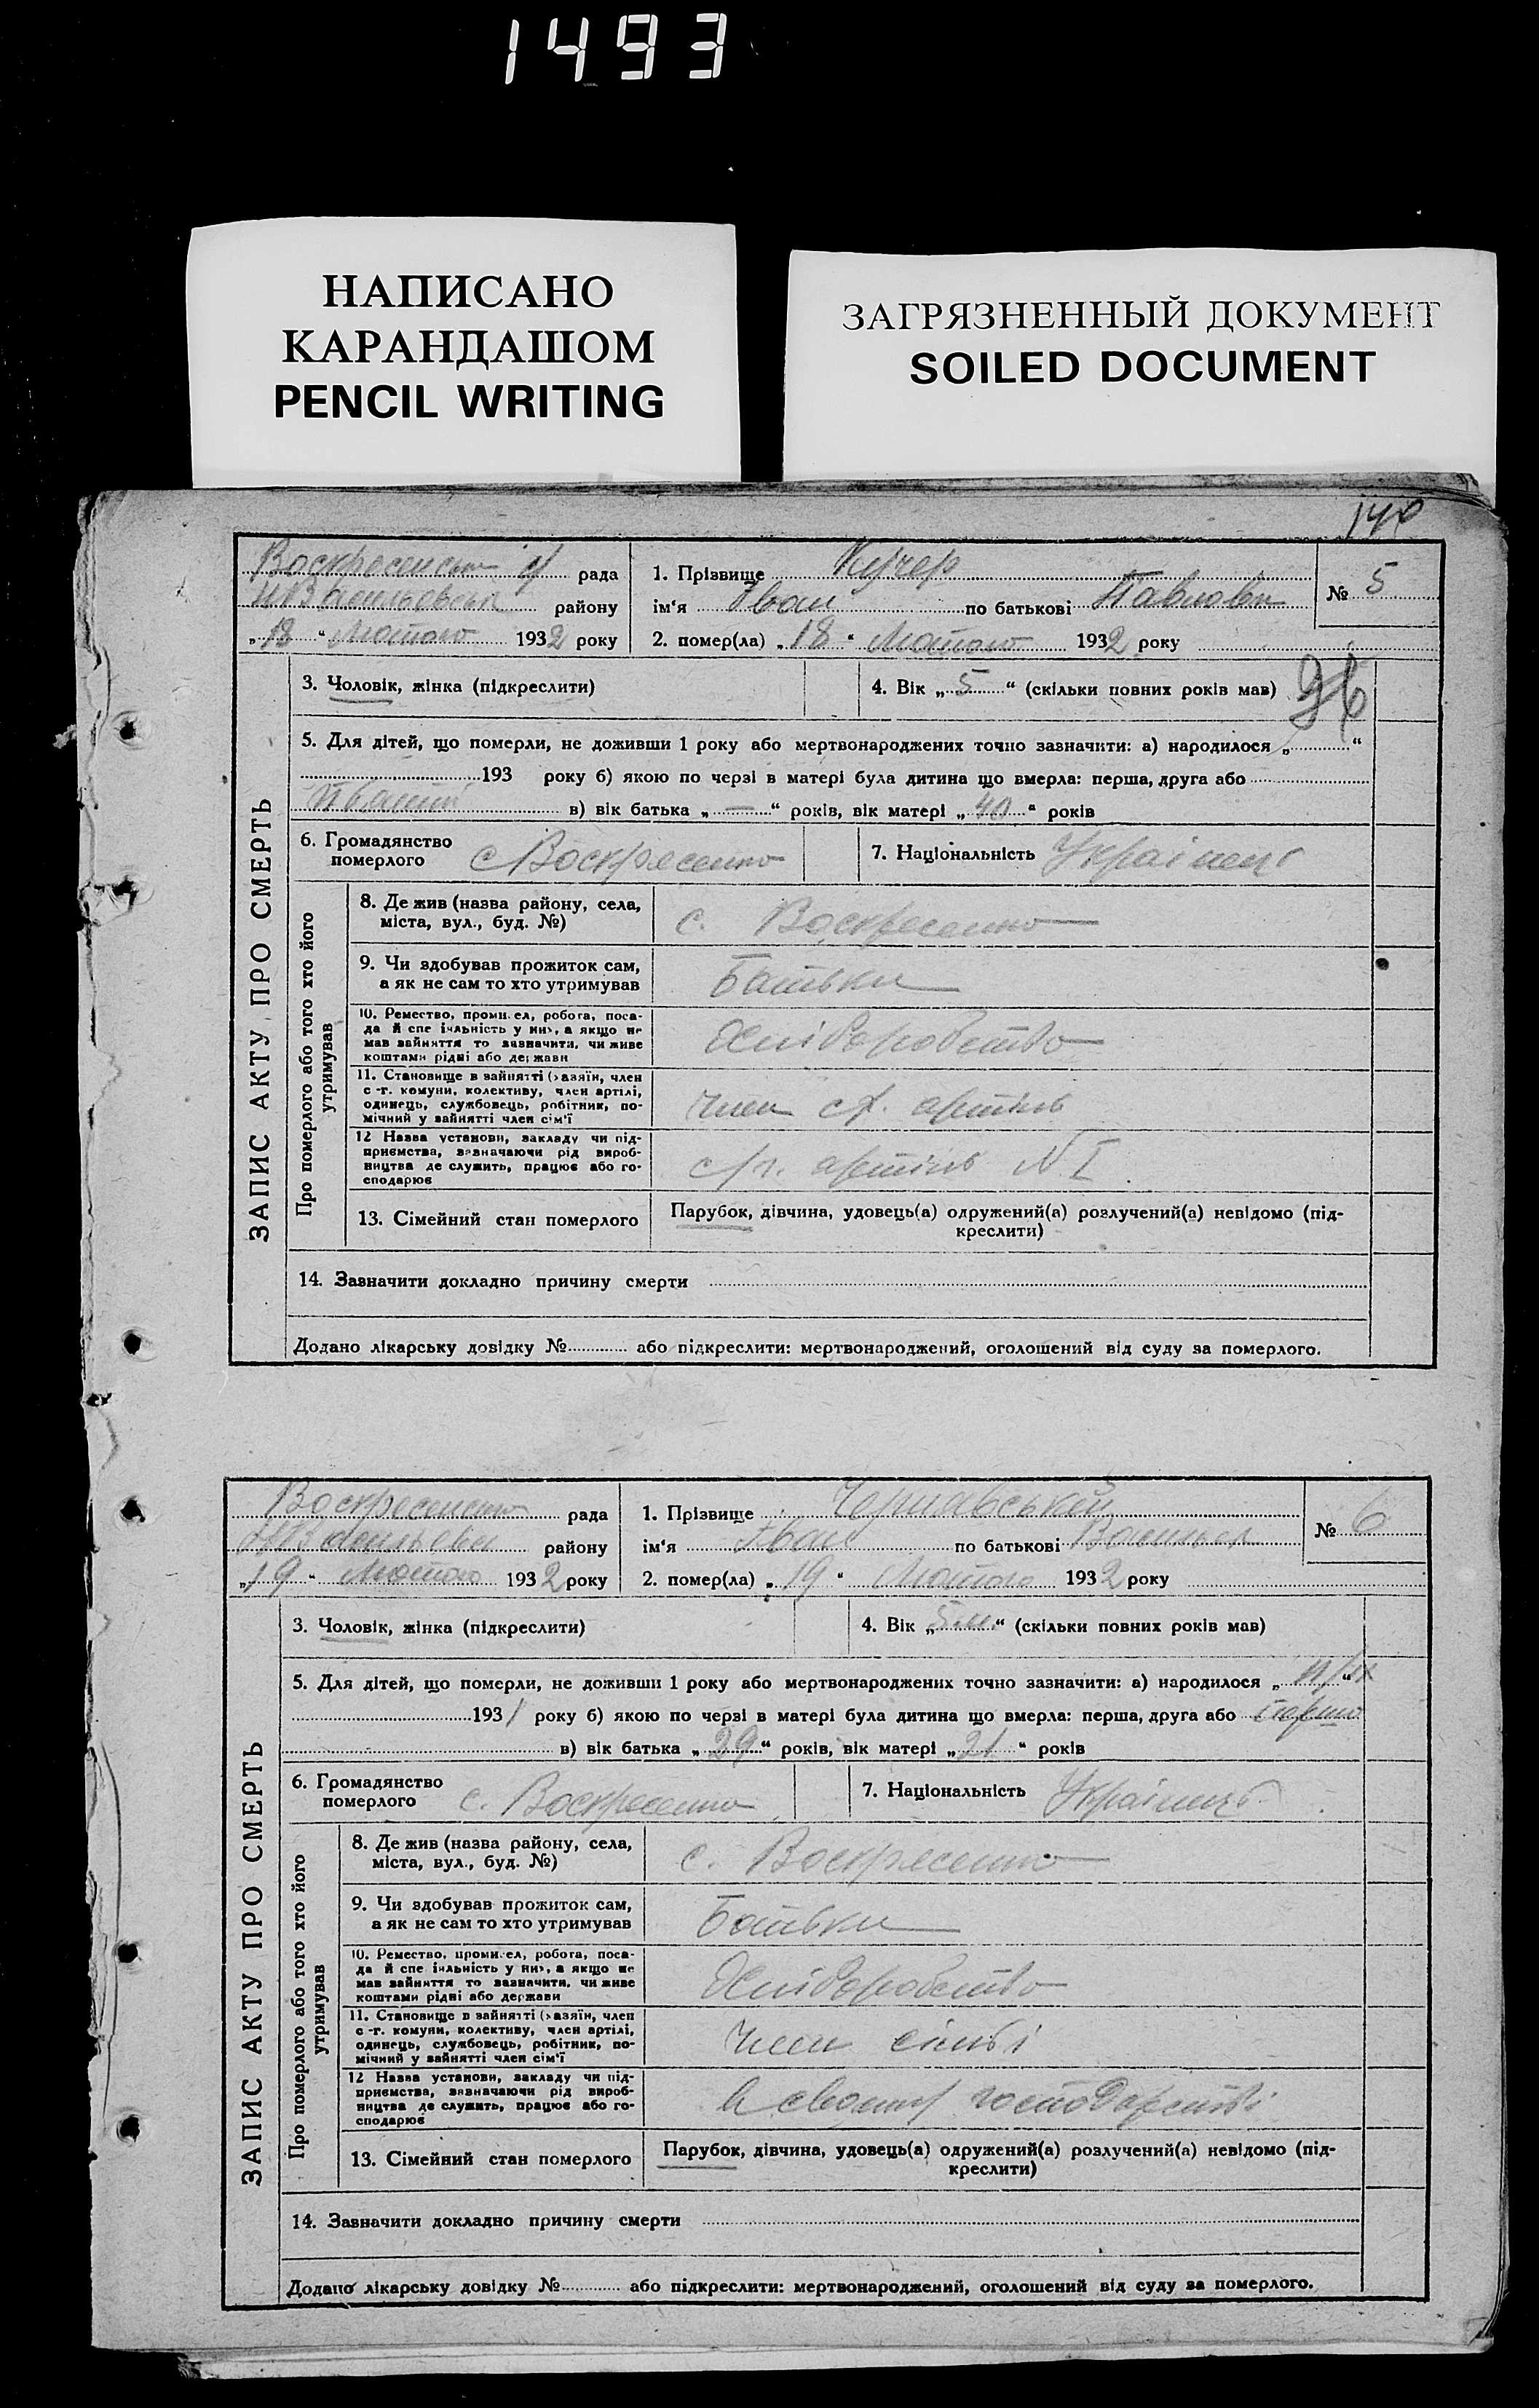 1493
НАПИСАНО
КАРАНДАШОМ
PENCIL WRITING
ЗАГРЯЗНЕННЫЙ ДОКУМЕНТ
SOILED DOCUMENT
140
рада
району
„18“ Лютого 1932 року
1. Прізвище Кучер
ім'я Іван по батькові Павлович
2. помер(ла) „18“ Лютого 1932 року
№ 5
3. Чоловік, жінка (підкреслити)
4. Вік „5“ (скільки повних років мав)
5. Для дітей, що померли, не доживши 1 року або мертвонароджених точно зазначити: а) народилося „ “
193 року б) якою по черзі в матері була дитина що вмерла: перша, друга або
в) вік батька „—“ років, вік матері „40“ років
6. Громадянство
померлого с Воскресенно
7. Національність Українець
ЗАПИС АКТУ ПРО СМЕРТЬ
Про померлого або того хто його
утримував
8. Де жив (назва району, села,
міста, вул., буд. №)
с. Воскресенно
9. Чи здобував прожиток сам,
а як не сам то хто утримував
Батьки
10. Ремество, промисел, робота, поса-
да й спеціяльність у них, а якщо не
мав зайняття то зазначити, чи живе
коштами рідні або держави
Хліборобство
11. Становище в зайнятті (хазяїн, член
с-г. комуни, колективу, член артілі,
одинець, службовець, робітник, по-
мічний у зайнятті член сім'ї
член с.г. артіль
12 Назва установи, закладу чи під-
приємства, зазначаючи рід вироб-
ництва де служить, працює або го-
сподарює
с/г. артіль N I
13. Сімейний стан померлого
Парубок, дівчина, удовець(а) одружений(а) розлучений(а) невідомо (під-
креслити)
14. Зазначити докладно причину смерти
Додано лікарську довідку № або підкреслити: мертвонароджений, оголошений від суду за померлого.
рада
району
„19“ Лютого 1932 року
1. Прізвище Чернавський
ім'я Іван по батькові
2. помер(ла) „19“ Лютого 1932 року
№ 6
3. Чоловік, жінка (підкреслити)
4. Вік „5 м“ (скільки повних років мав)
5. Для дітей, що померли, не доживши 1 року або мертвонароджених точно зазначити: а) народилося „ “
1931 року б) якою по черзі в матері була дитина що вмерла: перша, друга або перша
в) вік батька „29“ років, вік матері „21“ років
6. Громадянство
померлого с. Воскресенно
7. Національність Українець
ЗАПИС АКТУ ПРО СМЕРТЬ
Про померлого або того хто його
утримував
8. Де жив (назва району, села,
міста, вул., буд. №)
с. Воскресенно
9. Чи здобував прожиток сам,
а як не сам то хто утримував
Батьки
10. Ремество, промисел, робота, поса-
да й спеціяльність у них, а якщо не
мав зайняття то зазначити, чи живе
коштами рідні або держави
Хліборобство
11. Становище в зайнятті (хазяїн, член
с-г. комуни, колективу, член артілі,
одинець, службовець, робітник, по-
мічний у зайнятті член сім'ї
член
12 Назва установи, закладу чи під-
приємства, зазначаючи рід вироб-
ництва де служить, працює або го-
сподарює
в своему господарстві
13. Сімейний стан померлого
Парубок, дівчина, удовець(а) одружений(а) розлучений(а) невідомо (під-
креслити)
14. Зазначити докладно причину смерти
Додано лікарську довідку № або підкреслити: мертвонароджений, оголошений від суду за померлого.